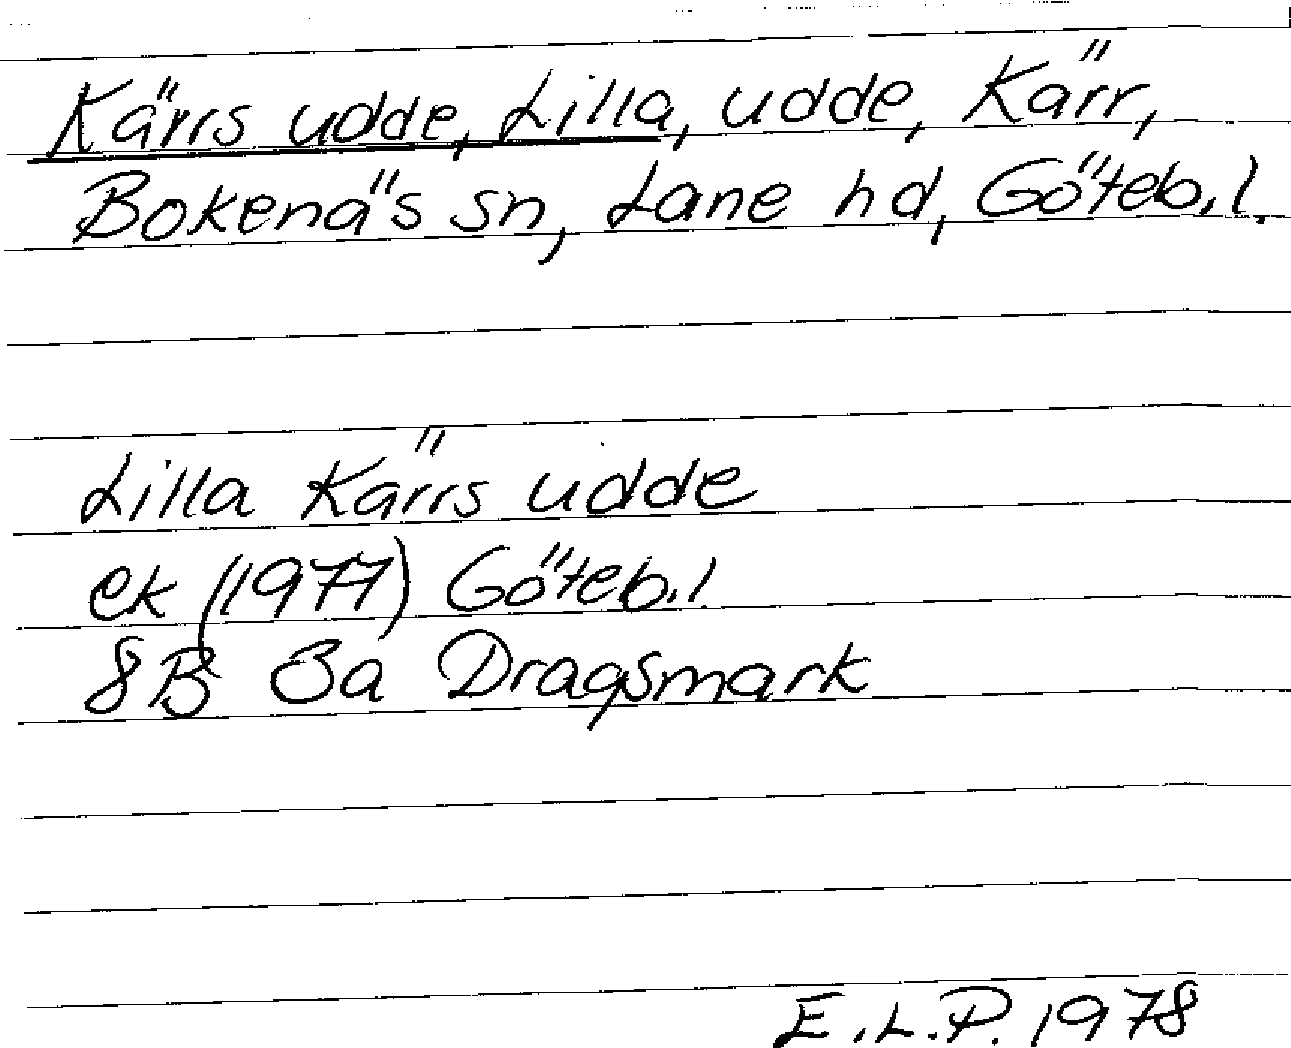 Kärrs udde, Lilla, udde, Kärr,
Bokenäs sn, Lane hd, Göteb.l.
Lilla Kärrs udde
ek (1977) Göteb.l
8B 3a Dragsmark
E.L.P. 1978